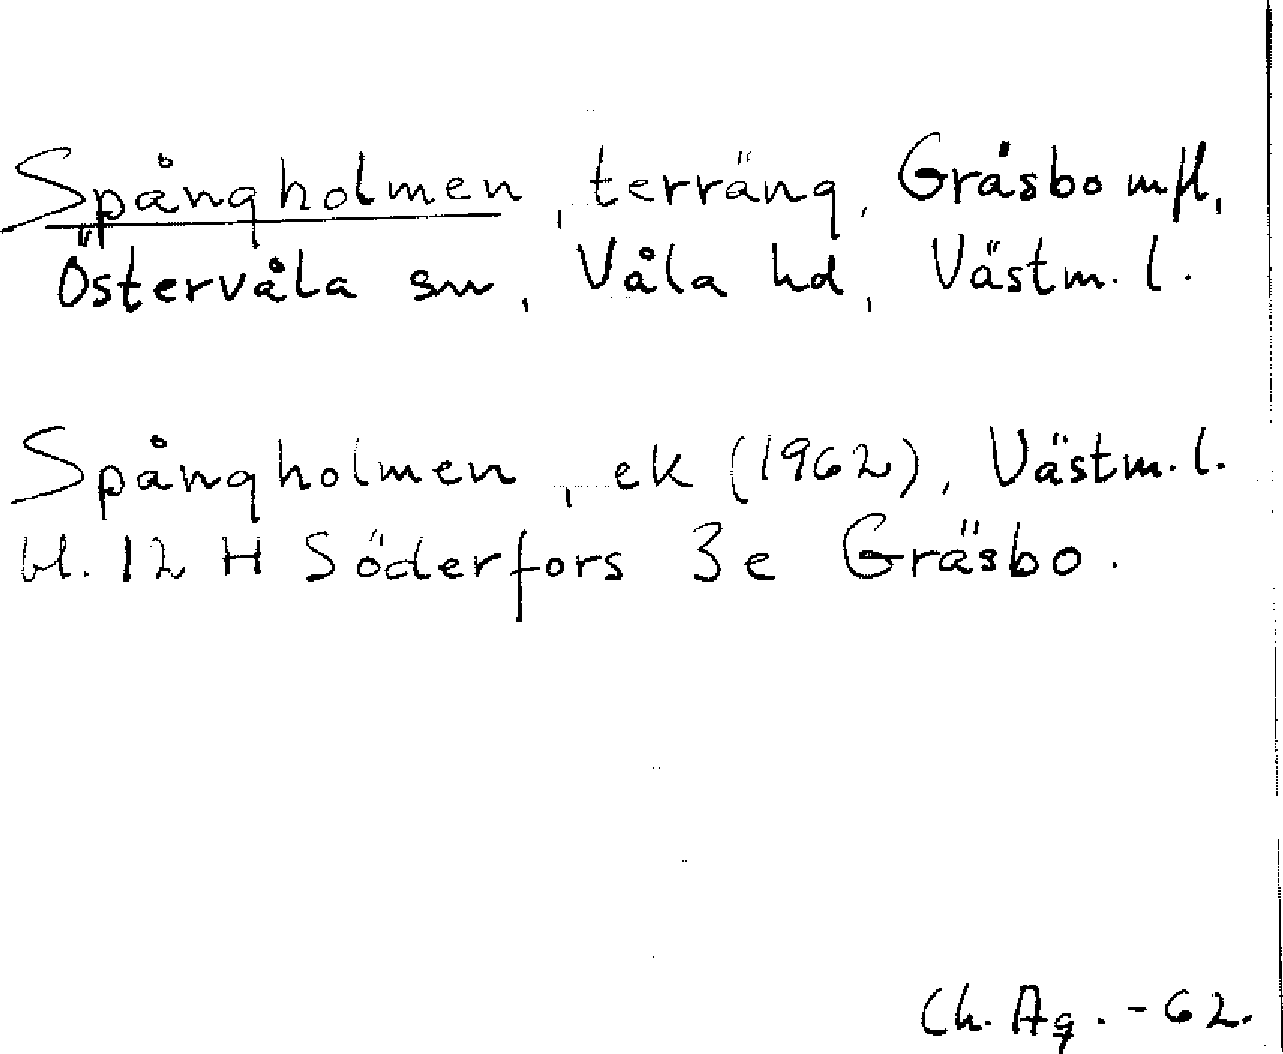 Spångholmen, terräng, Gräsbo mfl,
Östervåla sn, Våla hd, Västm. l.
Spångholmen, ek (1962), Västm. l.
bl. 12 H Söderfors 3e Gräsbo.
Ch. Ag. -62.